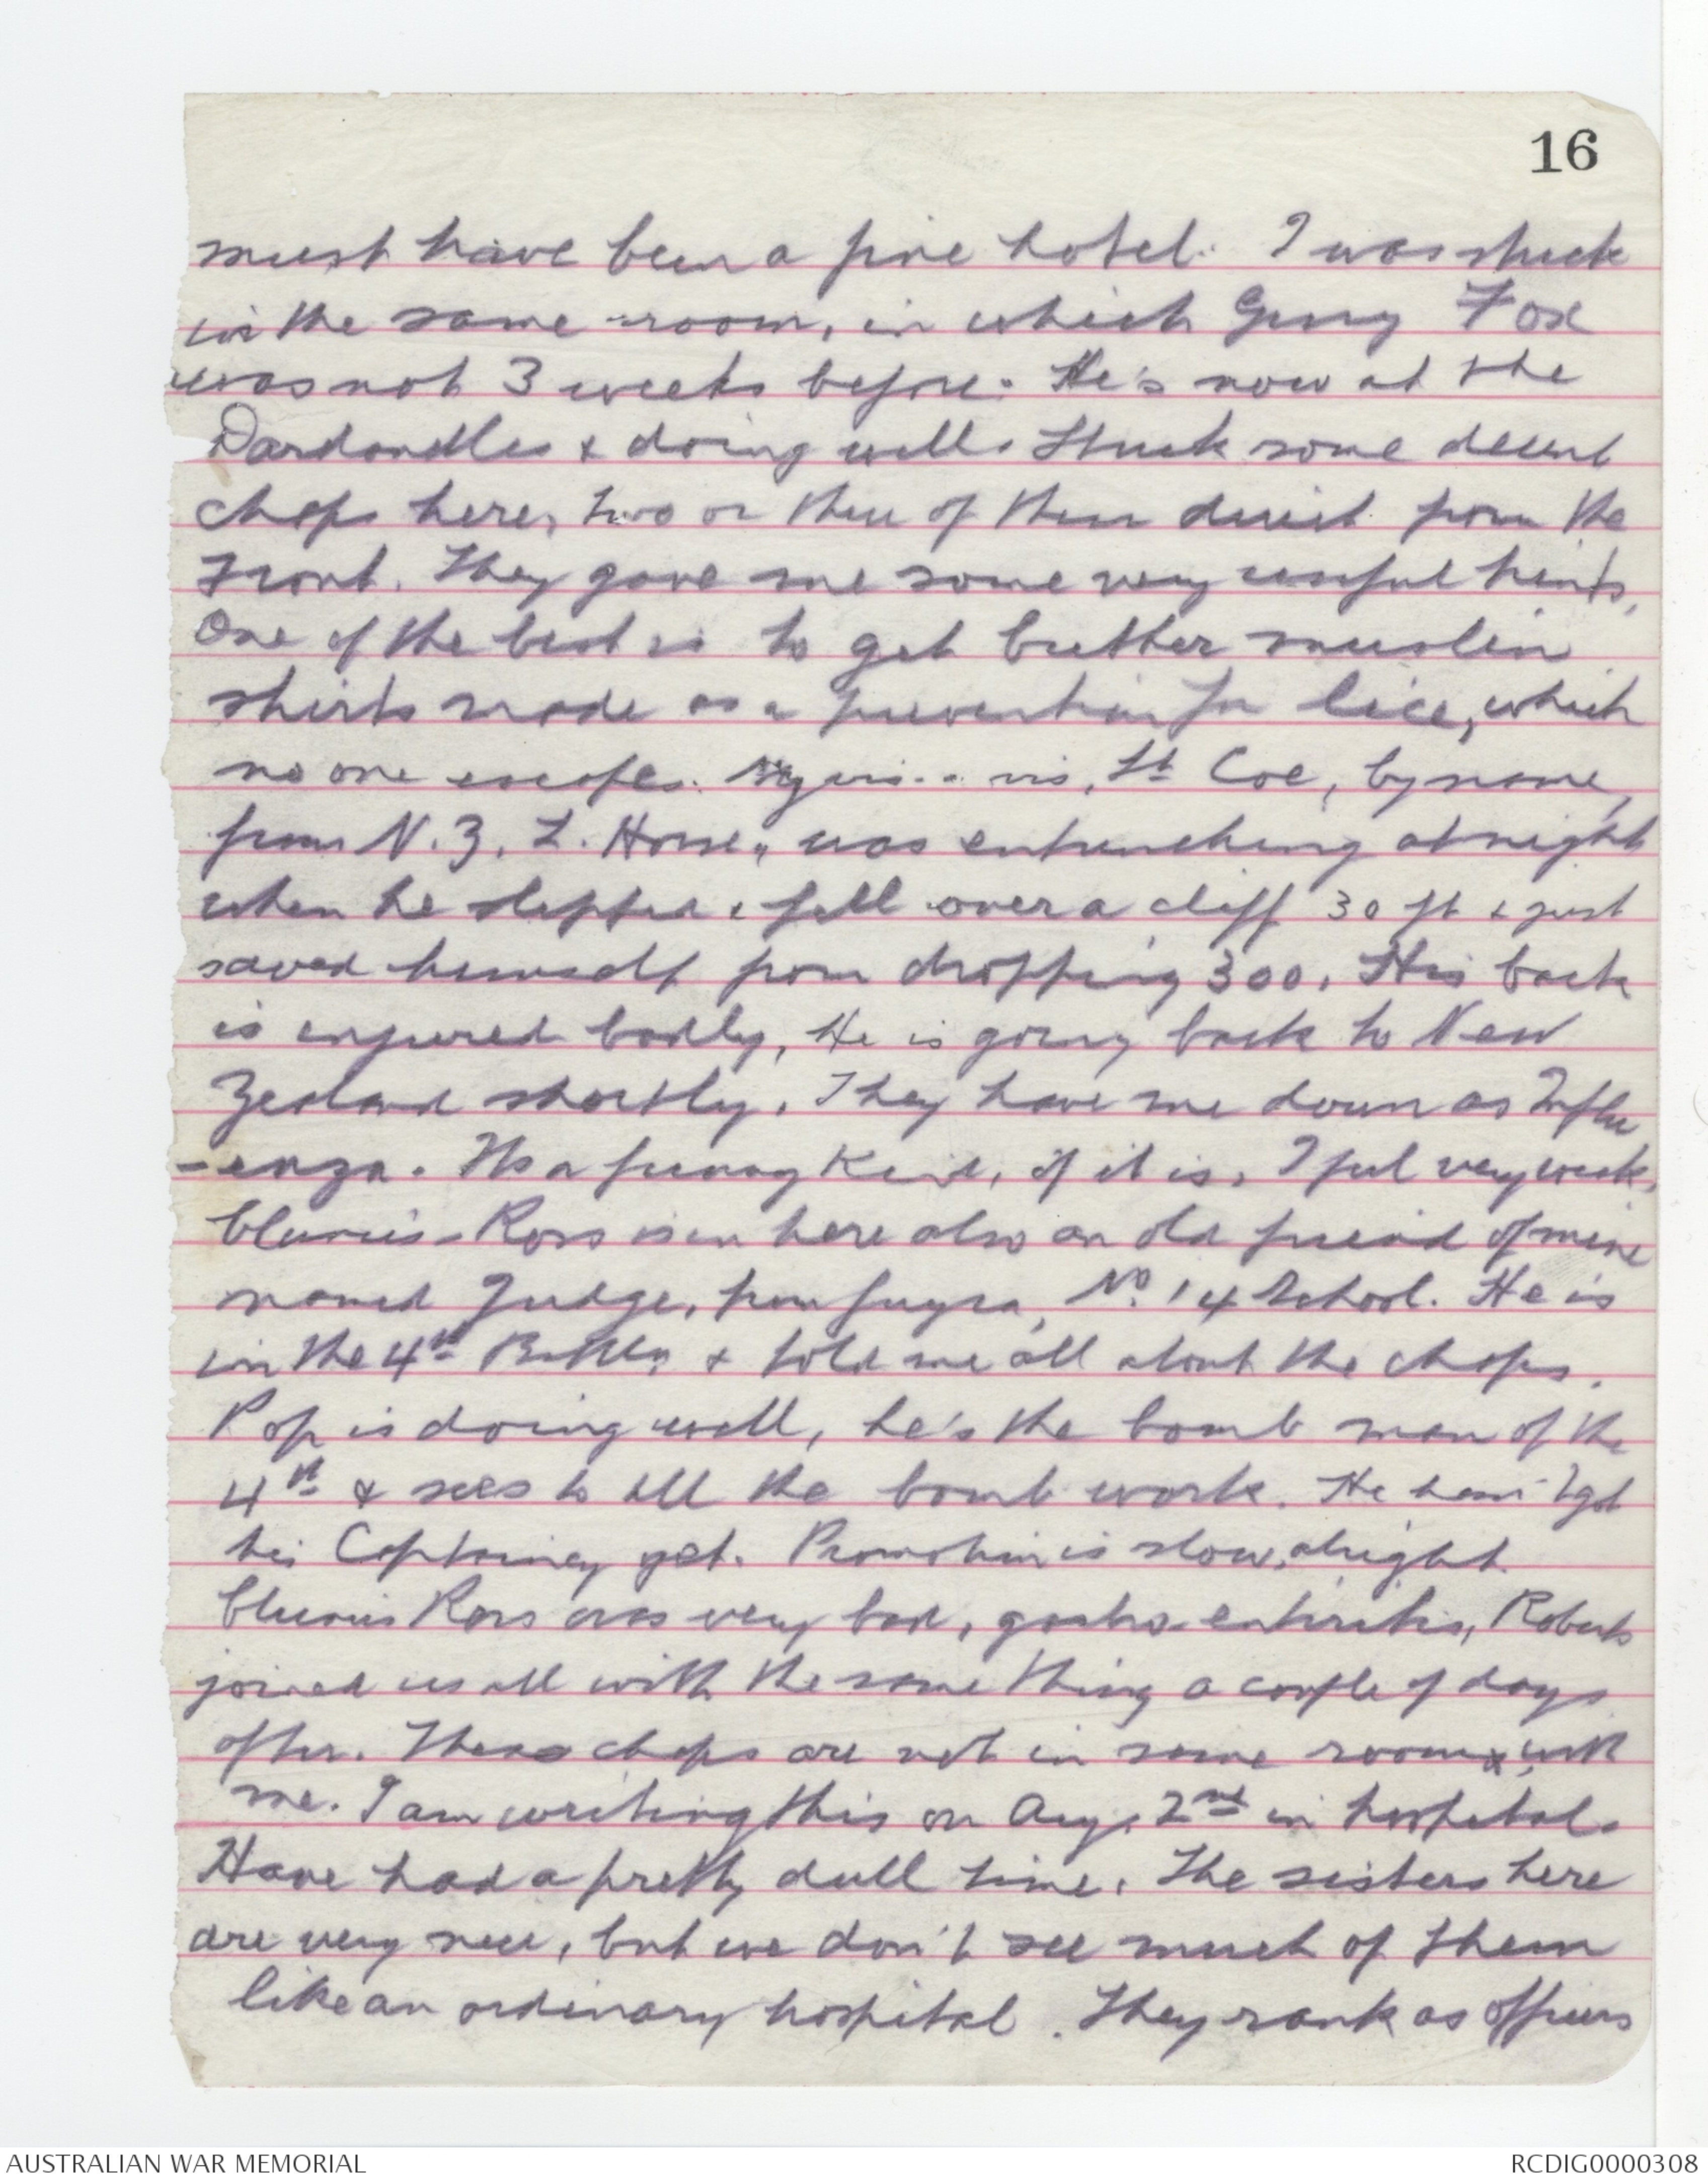 16
must have been a fine hotel. I was stuck
in the same room, in which Gerry Fox
was not 3 weeks before. He's now at the
Dardandlles & doing well. Struck some decent
chaps here, two or three of them direct from the
Front. They gave me some very useful hints,
One of the best is to get butter muslin
shirts made as a prevention for lice, which
no one escapes. My vis-a-vis, Lt Coe, by name,
from N.Z. L. Horse, was entrenching at night
when he slipped & fell over a cliff 30 ft & just
saved himself from dropping 300. His back
is injured badly, He is going back to New
Zealand shortly. They have me down as Influ
-enza. Its a funny kind, if it is, I feel very weak,
Clunies-Ross is in here also an old friend of mine
named Judge, from Guyra, No. 14 School. He is
in the 4th Battln & told me all about the chaps.
Pop is doing well, he's the bomb man of the
4th & sees to all the bomb work. He hasn't got
his Captaincy yet. Promotion is slow, alright.
Clunies Ross was very bad, gastro-enteritis, Roberts
joined us all with the same thing a couple of days
after. These chaps are not in same room with
me. I am writing this on Aug. 2nd in hospital.
Have had a pretty dull time. The sisters here
are very nice, but we don't see much of them
like an ordinary hospital. They rank as officers
AUSTRALIAN WAR MEMORIAL
RCDIG0000308